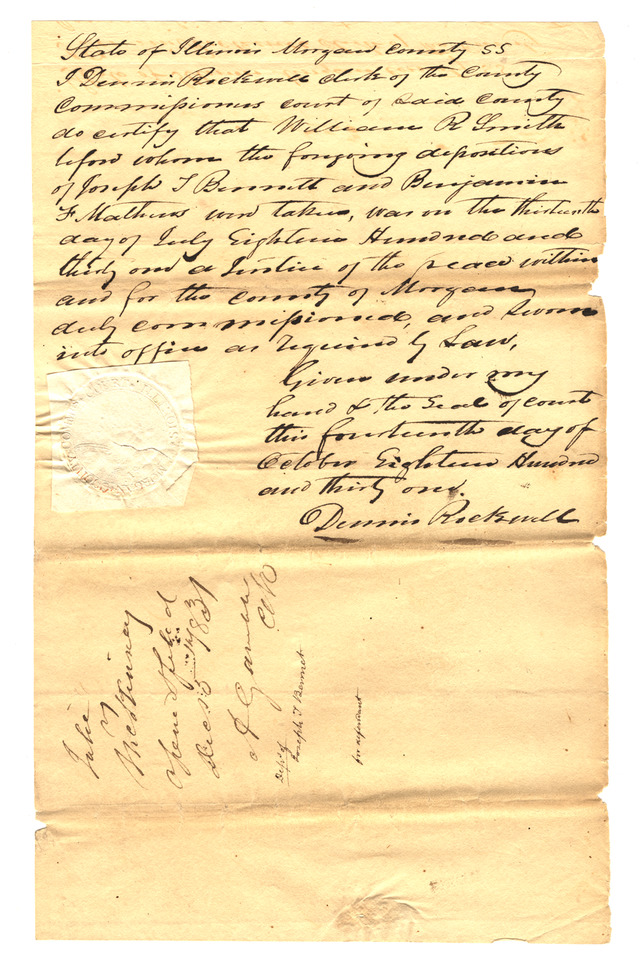 State of Illinois Morgan County SS
I Dennis Rockwell clerk of the County
Commissioners court of Said County
do certify that William R Smith
before whom the foregoing depositions
of Joseph T Bennett and Benjamin
F Mathews were taken, was on the thirteenth
day of July Eighteen Hundred and
thirty one a Justice of the peace within
and for the county of Morgan
duly commissioned, and sworn
into office as required by Law,
Given under my
hand & the Seal of court
this fourteenth day of
October Eighteen Hundred
and thirty one.
Dennis Rockwell
Julie
v
McKinney
Opened & filed
Dec 5th 1831
A Gamble
Clk
Dep of
Joseph T Bennet
for defendant